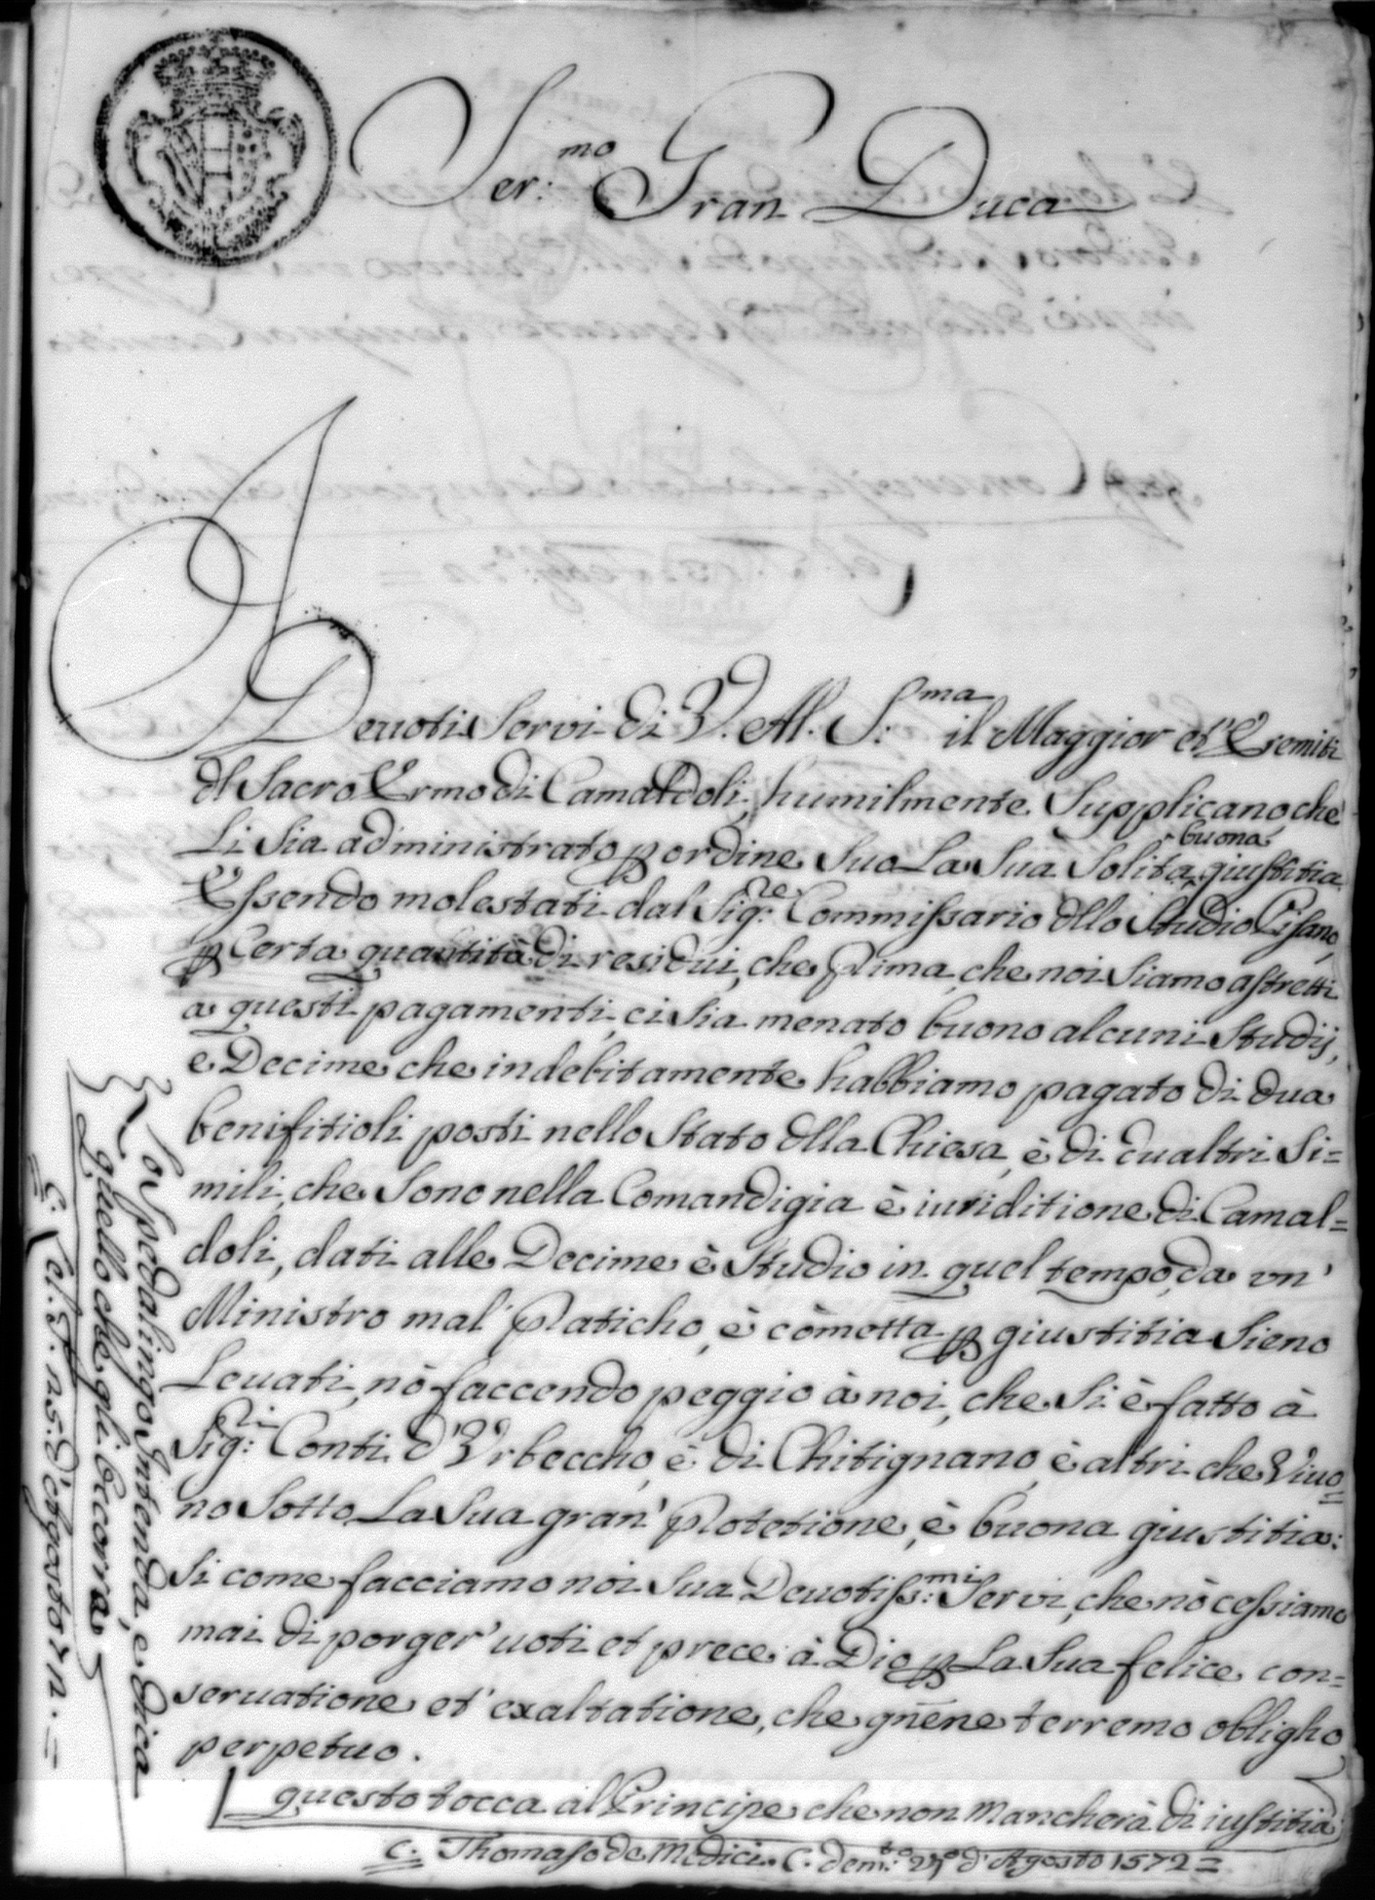 Ser:mo Gran Duca
I Deuoti Servi di V. Al. S:ma il Maggior et Eremiti
dl Sacro Ermo di Camaldoli, humilmente Supplicano che
Li Sia administrato p ordine Suo La Sua Solita buona giustitia.
Essendo molestati dal Sig:re Commissario dllo Studio Pisano,
p Certa quantità di residui, che Prima, che noi Siamo astretti
a questi pagamenti, ci Sia menato buono alcuni Studij,
e Decime che indebitamente habbiamo pagato di dua
benifitioli posti nello Stato dlla Chiesa, è di dualtri Si=
mili, che Sono nella Comandigia è iuriditione di Camal=
doli, dati alle Decime è Studio in quel tempo, da un'
Ministro mal' Platicho, è cometta p giustitia Sieno
Leuati, nò faccendo peggio à noi, che Si è fatto à
Sig:ri Conti d'Vrbeccho, è di Chitignano, è altri che Viuo=
no Sotto La Sua gran' Plotetione, è buona giustitia:
Si come facciamo noi Sua Deuotiss:mi Servi, che nò cessiamo
mai di porger' uoti et prece à Dio p La Sua felice con=
seruatione et' exaltatione, che gnene terremo obligho
perpetuo.
questo tocca al Principe che non Mancherà di iustitia
C. Thomaso de Medici. C. dem:to 29 d'Agosto 1572=
Lo Spedalingo Intenda, e dica
quello che gli occorra
d'Agosto 72.=